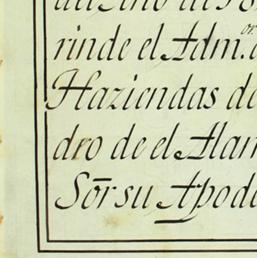 rinde el Adm.or
Haziendas de
dro de el Alam
Sōr su Apode